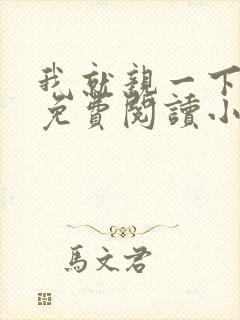 我就親一下
免費閱讀小
馬文君